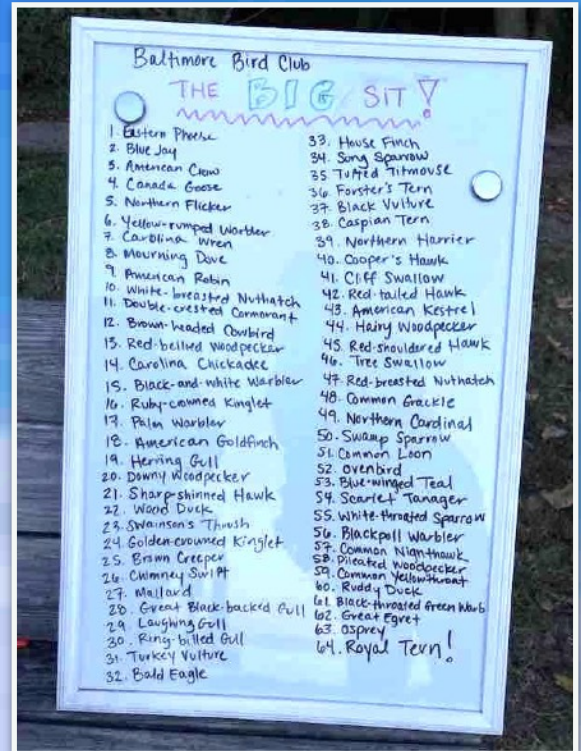 Baltimore Bird Club
THE BIG SIT!
1. Eastern Phoebe
2. Blue Jay
3. American Crow
4. Canada Goose
5. Northern Flicker
6. Yellow-rumped Warbler
7. Carolina Wren
8. Mourning Dove
9. American Robin
10. White-breasted Nuthatch
11. Double-crested Cormorant
12. Brown-headed Cowbird
13. Red-bellied Woodpecker
14. Carolina Chickadee
15. Black-and-white Warbler
16. Ruby-crowned Kinglet
17. Palm Warbler
18. American Goldfinch
19. Herring Gull
20. Downy Woodpecker
21. Sharp-shinned Hawk
22. Wood Duck
23. Swainson's Thrush
24. Golden-crowned Kinglet
25. Brown Creeper
26. Chimney Swift
27. Mallard
28. Great Black-backed Gull
29. Laughing Gull
30. Ring-billed Gull
31. Turkey Vulture
32. Bald Eagle
33. House Finch
34. Song Sparrow
35 Tufted Titmouse
36. Forster's Tern
37. Black Vulture
38. Caspian Tern
39. Northern Harrier
40. Cooper's Hawk
41. Cliff Swallow
42. Red-tailed Hawk
43. American Kestrel
44. Hairy Woodpecker
45. Red-shouldered Hawk
46. Tree Swallow
47. Red-breasted Nuthatch
48. Common Grackle
49. Northern Cardinal
50. Swamp Sparrow
51. Common Loon
52. Ovenbird
53. Blue-winged Teal
54. Scarlet Tanager
55. White-throated Sparrow
56. Blackpoll Warbler
57. Common Nighthawk
58. Pileated Woodpecker
59. Common Yellowthroat
60. Ruddy Duck
61. Black-throated Green Warb
62. Great Egret
63. Osprey
64. Royal Tern!